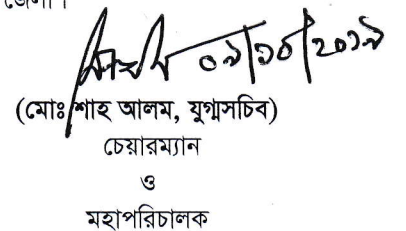 জেলা।
০৯/১০/২০১৯
(মোঃ শাহ আলম, যুগ্মসচিব)
চেয়ারম্যান
ও
মহাপরিচালক